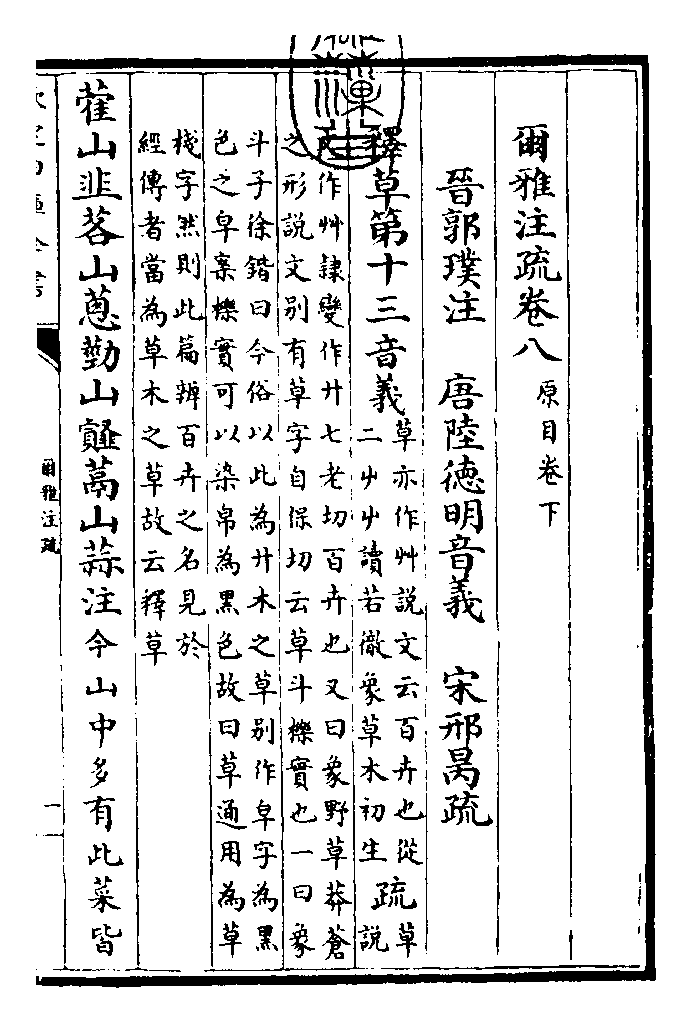 爾雅注疏卷八 原目卷下
晉郭璞注 唐陸德明音義 宋邢昺疏
釋草第十三音義
草亦作艸説文云百卉也從
二屮屮讀若徹象草木初生
疏
草
説
文作艸隷變作廾七老切百卉也又曰象野草莽蒼
之形説文别有草字自保切云草斗櫟實也一曰象
斗子徐鍇曰今俗以此為廾木之草别作皁字為黒
色之皁案櫟實可以染帛為黒色故曰草通用為草
棧字然則此篇辨百卉之名見於
經傳者當為草木之草故云釋草
藿山韭茖山蔥葝山䪥蒚山蒜注今山中多有此菜皆
爾雅注疏
一